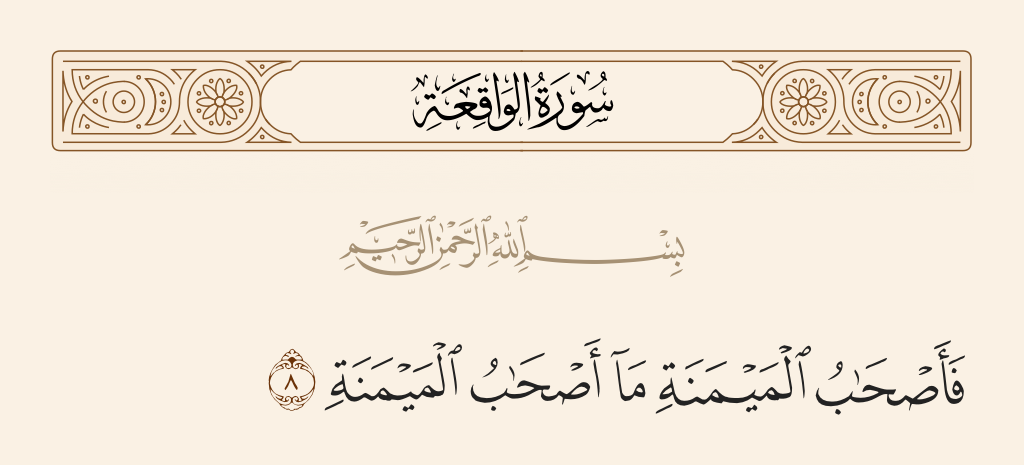 سُورَةُ الوَاقِعَةِ
بِسْمِ ٱللَّهِ ٱلرَّحْمَٰنِ ٱلرَّحِيمِ
فَأَصْحَٰبُ ٱلْمَيْمَنَةِ مَآ أَصْحَٰبُ ٱلْمَيْمَنَةِ ٨